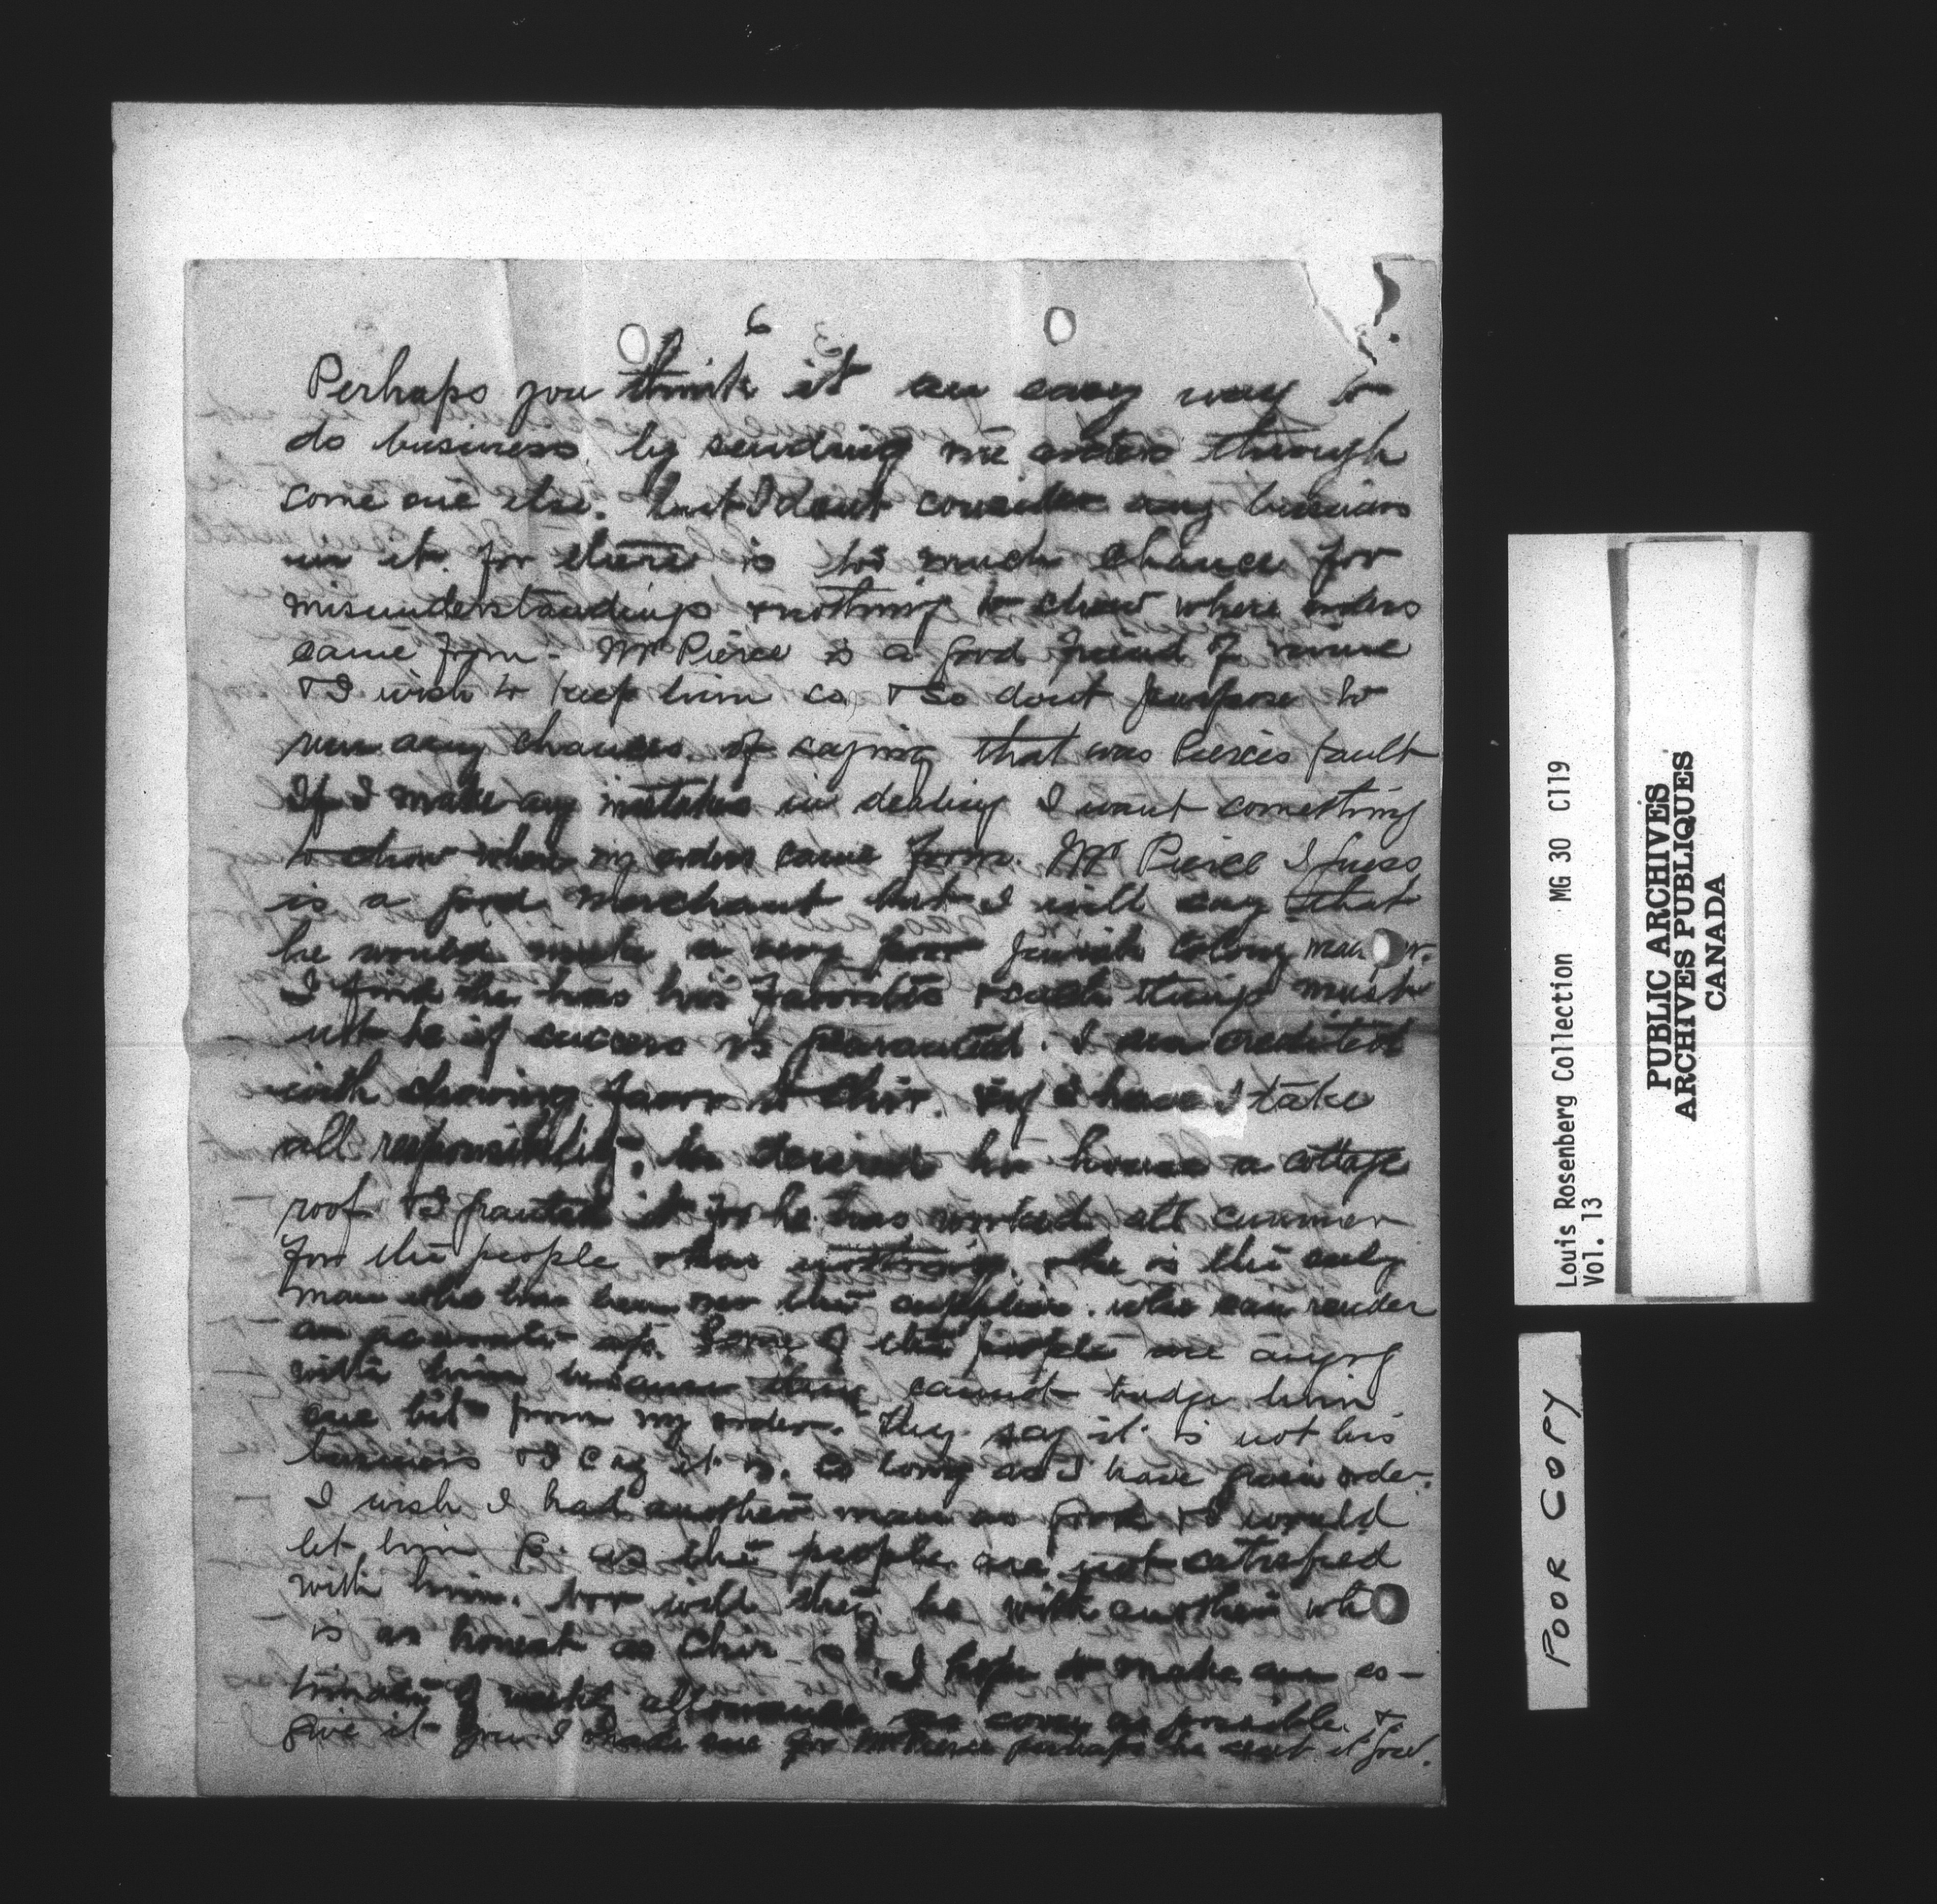 6
Perhaps you think it an easy way to
do business by sending me orders through
some one else. but I dont consider any business
in it. for there is too much chance for
misunderstandings & nothing to show where orders
came from - Mr Pierce is a good friend of mine
& I wish to keep him so, & so dont purpose to
run any chances of saying that was Pierces fault
If I make any mistakes in dealing I want something
to show where my orders came from. Mr Pierce I guess
is a good merchant but I will say that
he would make a very poor Jewish Colony man
I find he has his favorites & such things must
not be if success is guaranteed. I am credited
with showing favor to Chir. if I have I take
all responsibility. he desired his house a cottage
roof & I granted it for he has worked all summer
for the people & has nothing. & he is the only
man who has been on the supplies. who can render
an accurate a/c. Some of the people are angry
with him because they cannot budge him
one bit from my orders. They say it is not his
business & I say it is. so long as I have given order.
I wish I had another man as good & I would
let him go as the people are not satisfied
with him. nor will they be with another who
is as honest as Chir is. I hope to make an es-
timate of weekly allowance as soon as possible &
give it you I made one for Mr Pierce perhaps he sent it you.
Louis Rosenberg Collection MG 30 C119
Vol. 13
PUBLIC ARCHIVES
ARCHIVES PUBLIQUES
CANADA
POOR COPY